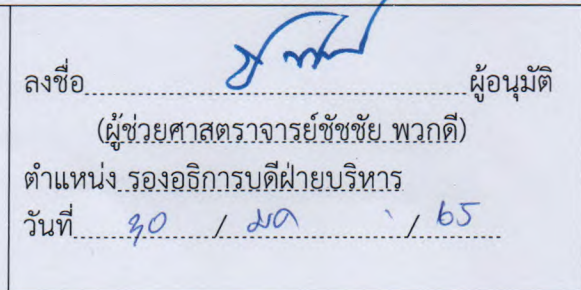 ลงชื่อ..........ผู้อนุมัติ
(ผู้ช่วยศาสตราจารย์ชัชชัย พวกดี)
ตำแหน่ง รองอธิการบดีฝ่ายบริหาร
วันที่ 30 / มค / 65